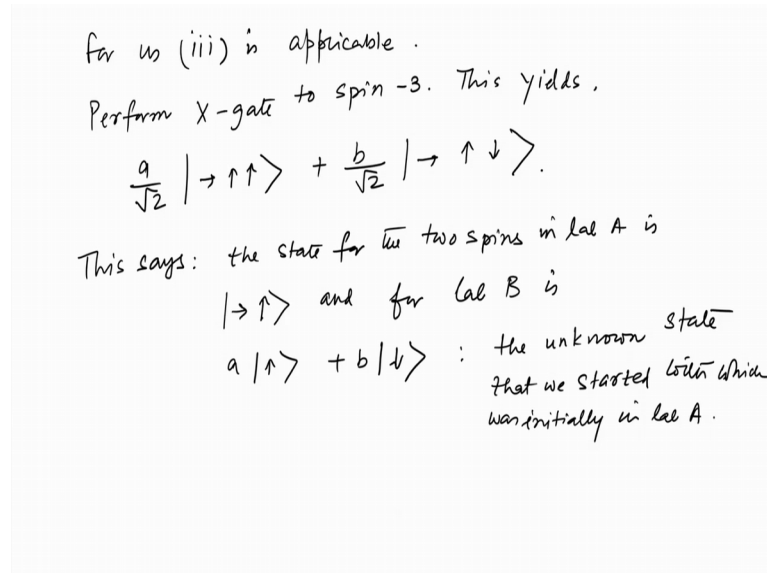 for us (iii) is applicable.
Perform X-gate to spin-3. This yields,
a/√2 |→↑↑> + b/√2 |→↑↓>.
This says: the state for the two spins in lab A is
|→↑> and for lab B is
a|↑> + b|↓> : the unknown state
that we started with which
was initially in lab A.